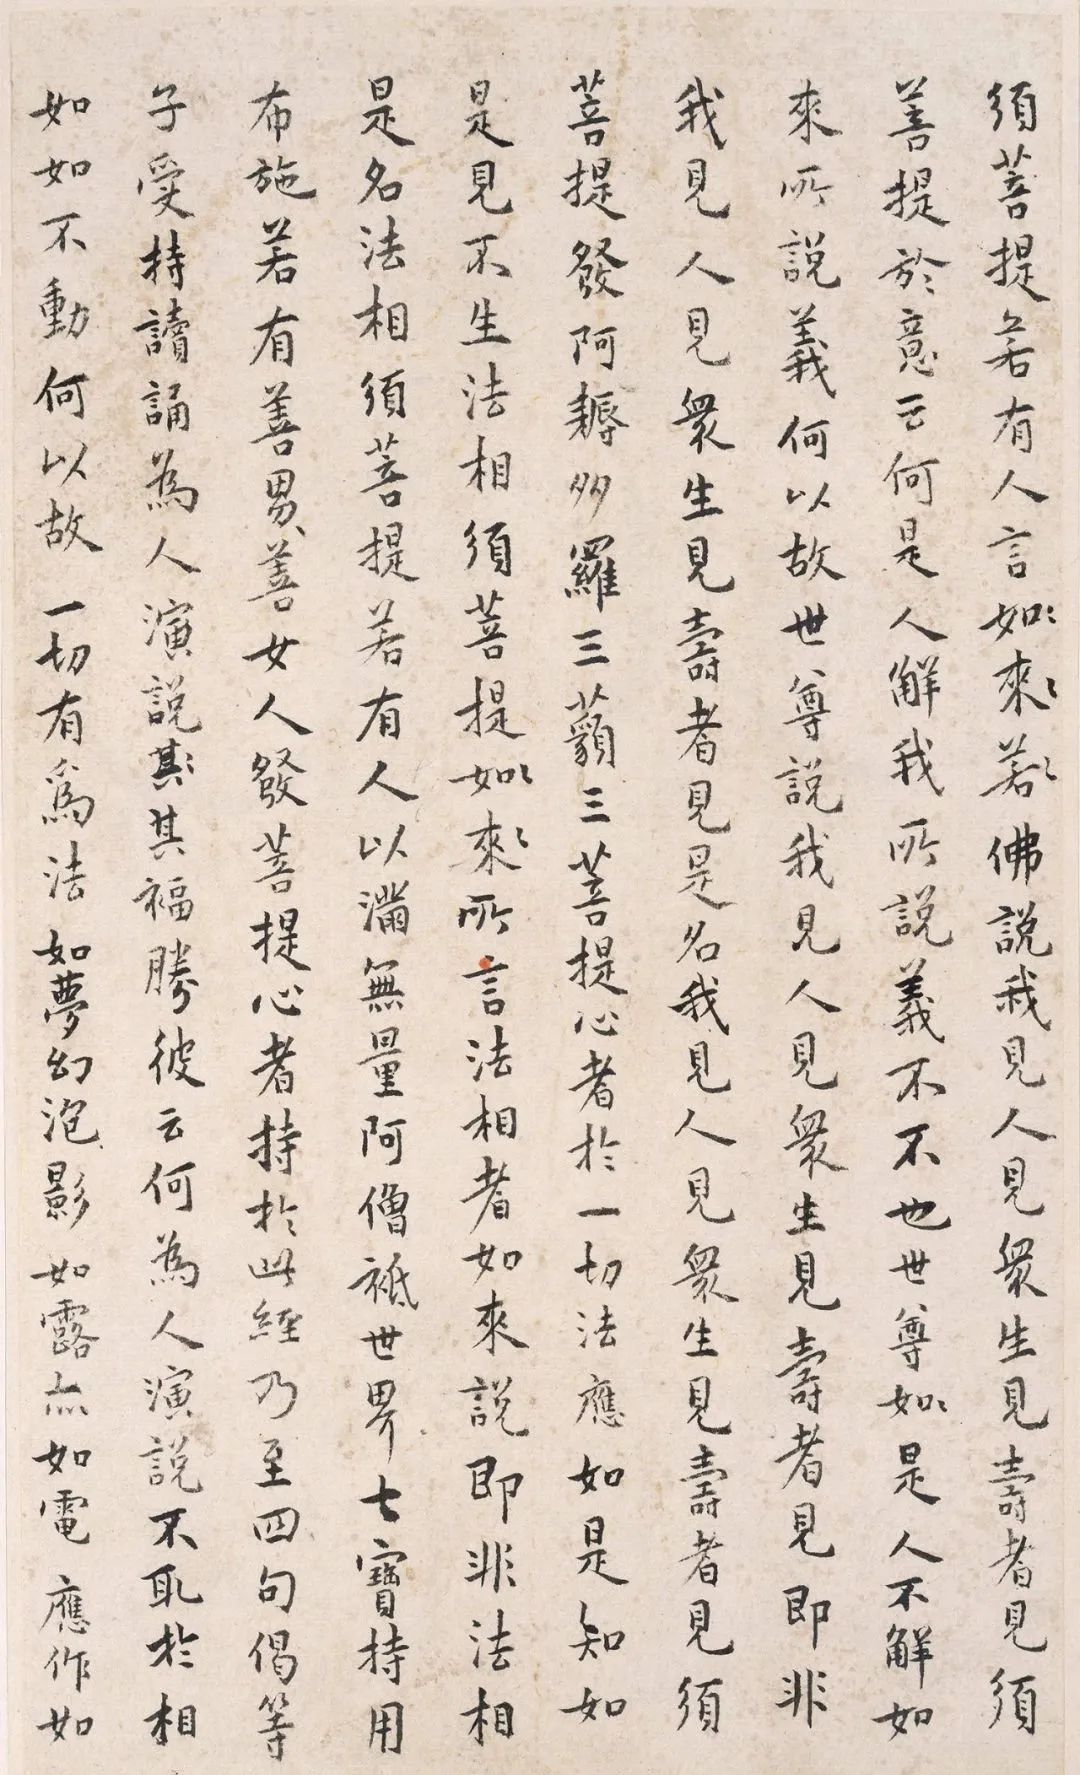 須菩提若有人言如來若佛說我見人見衆生見壽者見須
善提於意云何是人解我所說義不不也世尊如是人不解如
來所說義何以故世尊說我見人見衆生見壽者見即非
我見人見衆生見壽者見是名我見人見衆生見壽者見須
菩提發阿耨多羅三藐三菩提心者於一切法應如是知如
是見不生法相須菩提如來所言法相者如來說即非法相
是名法相須菩提若有人以滿無量阿僧祇世界七寶持用
布施若有善男善女人發菩提心者持於此經乃至四句偈等
子受持讀誦為人演說其其福勝彼云何為人演說不取於相
如如不動何以故一切有為法如夢幻泡影如露亦如電應作如